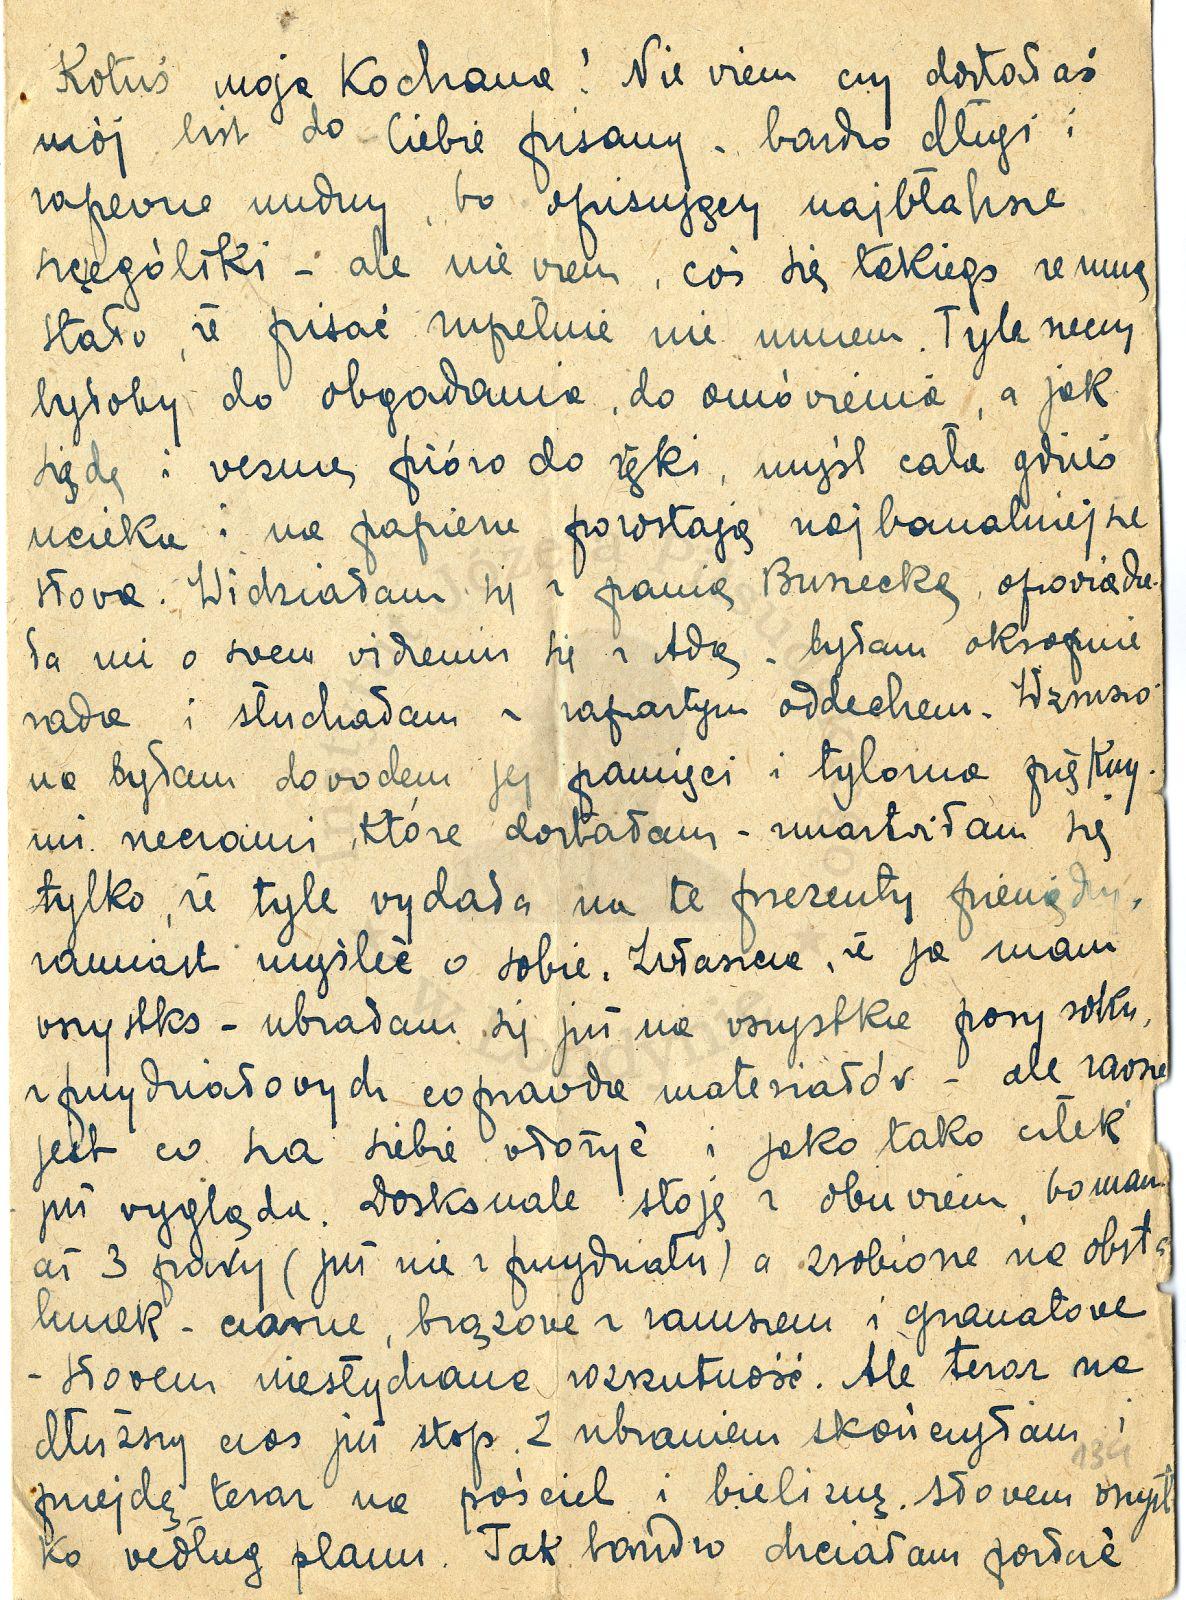 Kotuś moja Kochana! Nie wiem czy dostałaś
mój list do Ciebie pisany - bardzo długi i
zapewne nudny, bo opisujący najbłahsze
szczególiki - ale nie wiem, coś się takiego ze mną
stało, że pisać zupełnie nie umiem. Tyle rzeczy
byłoby do obgadania, do omówienia, a jak
siądę i wezmę pióro do ręki, myśl cała gdzieś
ucieka i na papierze pozostają najbanalniejsze
słowa. Widziałam się z panią Buszecką, opowiada-
ła mi o swem widzeniu się z Adą - byłam okropnie
rada i słuchałam z zapartym oddechem. Wzruszo-
na byłam dowodem jej pamięci i tyloma piękny-
mi rzeczami, które dostałam - zmartwiłam się
tylko, że tyle wydała na te prezenty pieniędzy,
zamiast myśleć o sobie. Zwłaszcza, że ja mam
wszystko - ubrałam się już na wszystkie pory roku,
z przydziałowych coprawda materiałów - ale zawsze
jest co na siebie włożyć i jako tako człek
już wygląda. Doskonale stoję z obuwiem, bo mam
aż 3 pary (już nie z przydziału) a zrobione na obsta
lunek - czarne, brązowe z zamszem i granatowe
- słowem niesłychana rozrzutność. Ale teraz na
dłuższy czas już stop. Z ubraniem skończyłam i
przejdę teraz na pościel i bieliznę. Słowem wszyst
ko według planu. Tak bardzo chciałam posłać
134
Instytut Józefa Piłsudskiego
w Londynie